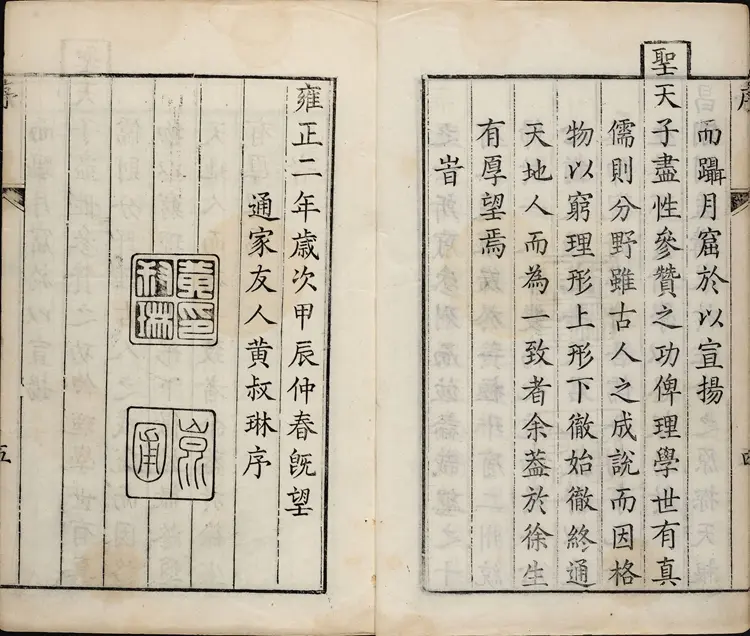 而躡月窟於以宣揚
聖天子盡性參贊之功俾理學世有真
儒則分野雖古人之成說而因格
物以窮理形上形下徹始徹終通
天地人而為一致者余葢於徐生
有厚望焉
旹
雍正二年歲次甲辰仲春旣望
通家友人黃叔琳序
黃叔琳印
序
五